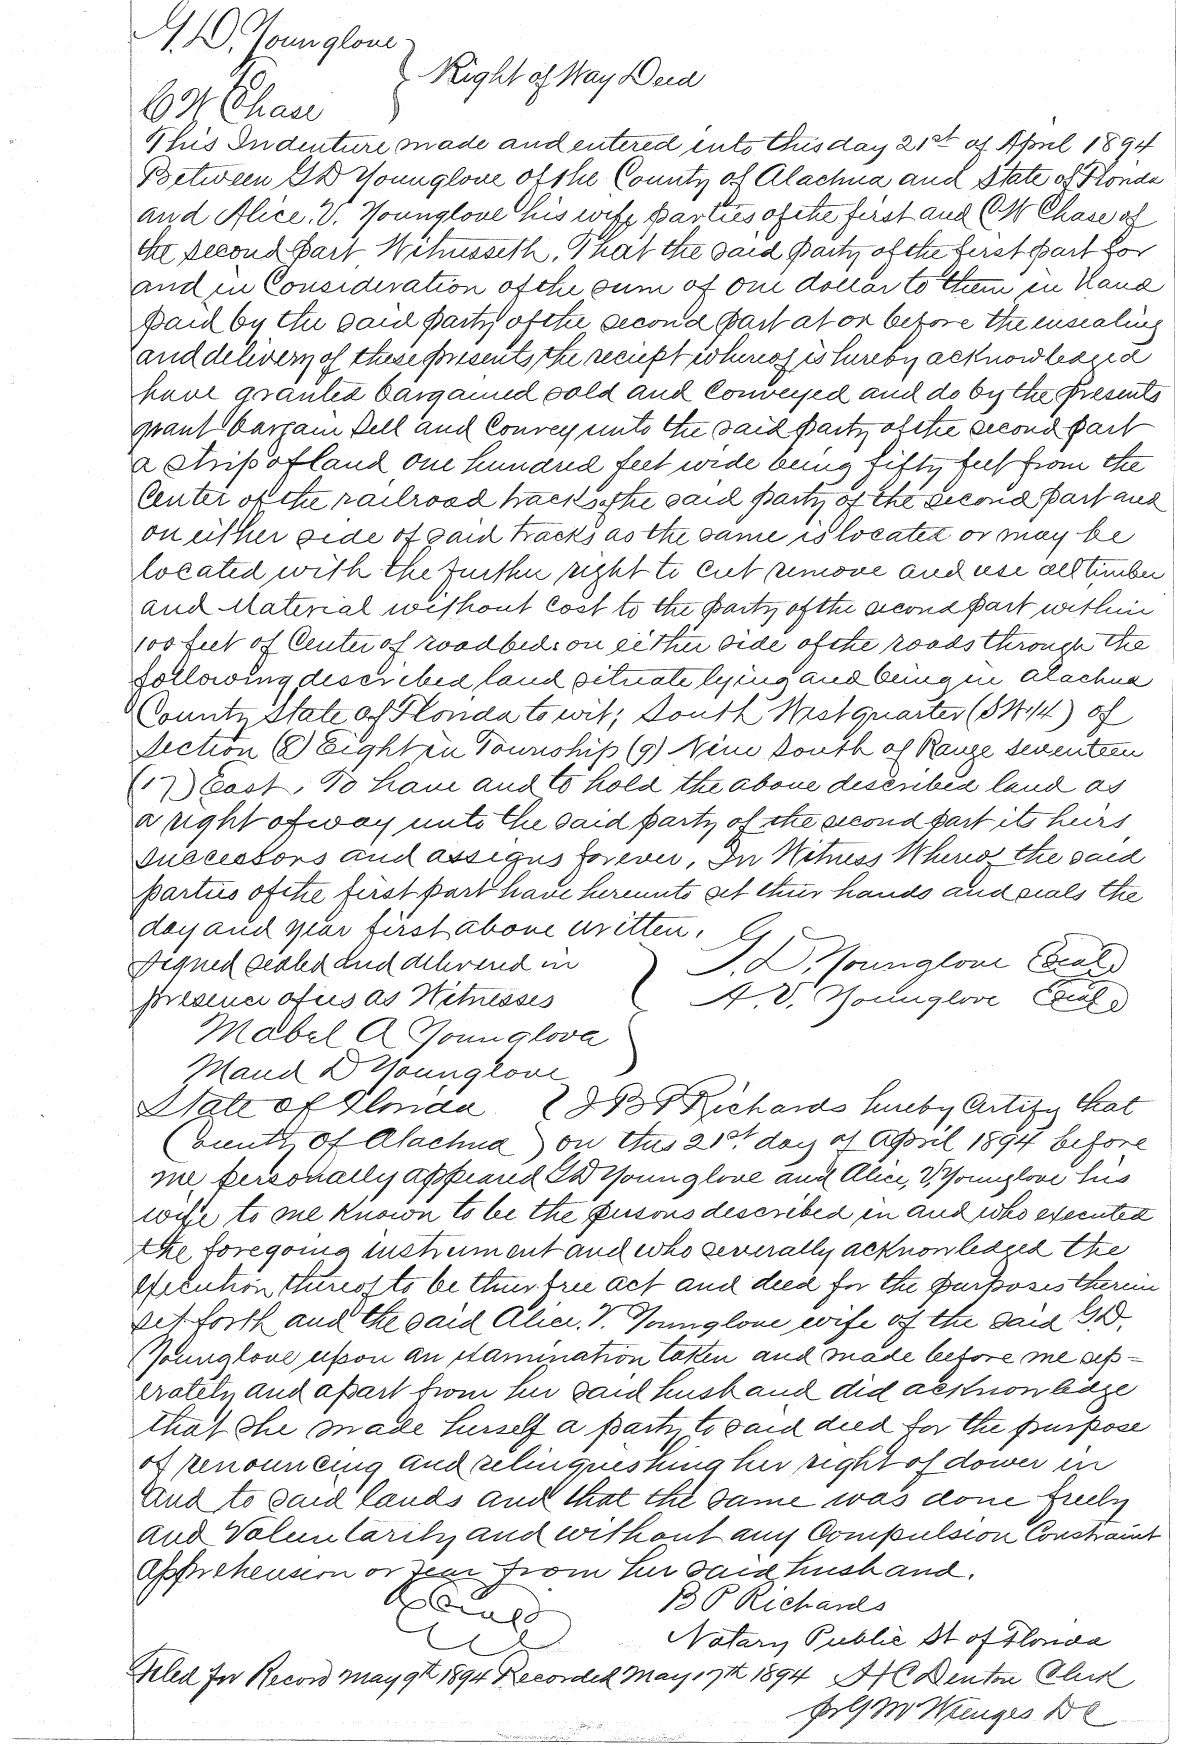 G. D. Younglove
to
C W Chase
Right of Way Deed
This Indenture made and entered into this day 21st of April 1894
Between G D Younglove of the County of Alachua and State of Florida
and Alice. V. Younglove his wife parties of the first and C W Chase of
the second part Witnesseth. That the said party of the first part for
and in Consideration of the sum of one dollar to them in hand
paid by the said party of the second part at or before the ensealing
and delivery of these presents, the reciept whereof is hereby acknowledged
have granted bargained sold and Conveyed and do by the presents
grant bargain Sell and Convey unto the said party of the second part
a strip of land one hundred feet wide being fifty feet from the
Center of the railroad tracks of the said party of the second part and
on either side of said tracks as the same is located or may be
located with the further right to cut remove and use all timber
and Material without Cost to the party of the second part within
100 feet of Center of roadbeds on either side of the roads through the
following described land situate lying and being in Alachua
County State of Florida to wit; South West quarter (SW 1/4) of
Section (8) Eight in Township (9) Nine South of Range seventeen
(17) East. To have and to hold the above described land as
a right of way unto the said party of the second part its heirs
successors and assigns forever. In Witness Whereof the said
parties of the first part have hereunto set their hands and seals the
day and year first above written.
Signed sealed and delivered in
presence of us as Witnesses
G. D. Younglove Seal
A. V. Younglove Seal
Mabel A Younglova
Maud D Younglove
State of Florida
County of Alachua
I B P Richards hereby Certify that
on this 21st day of April 1894 before
me personally appeared G D Younglove and Alice. V. Younglove his
wife to me known to be the persons described in and who executed
the foregoing instrument and who severally acknowledged the
execution thereof to be their free act and deed for the purposes therein
set forth and the said Alice. V. Younglove wife of the said G. D.
Younglove upon an examination taken and made before me sep-
erately and apart from her said husband did acknowledge
that she made herself a party to said deed for the purpose
of renouncing and relinquishing her right of dower in
and to said lands and that the same was done freely
and Voluntarily and without any Compulsion Constraint
apprehension or fear from her said husband.
Seal
B P Richards
Notary Public St of Florida
Filed for Record May 9th 1894 Recorded May 17th 1894 H C Denton Clerk
pr G M Wienges D C